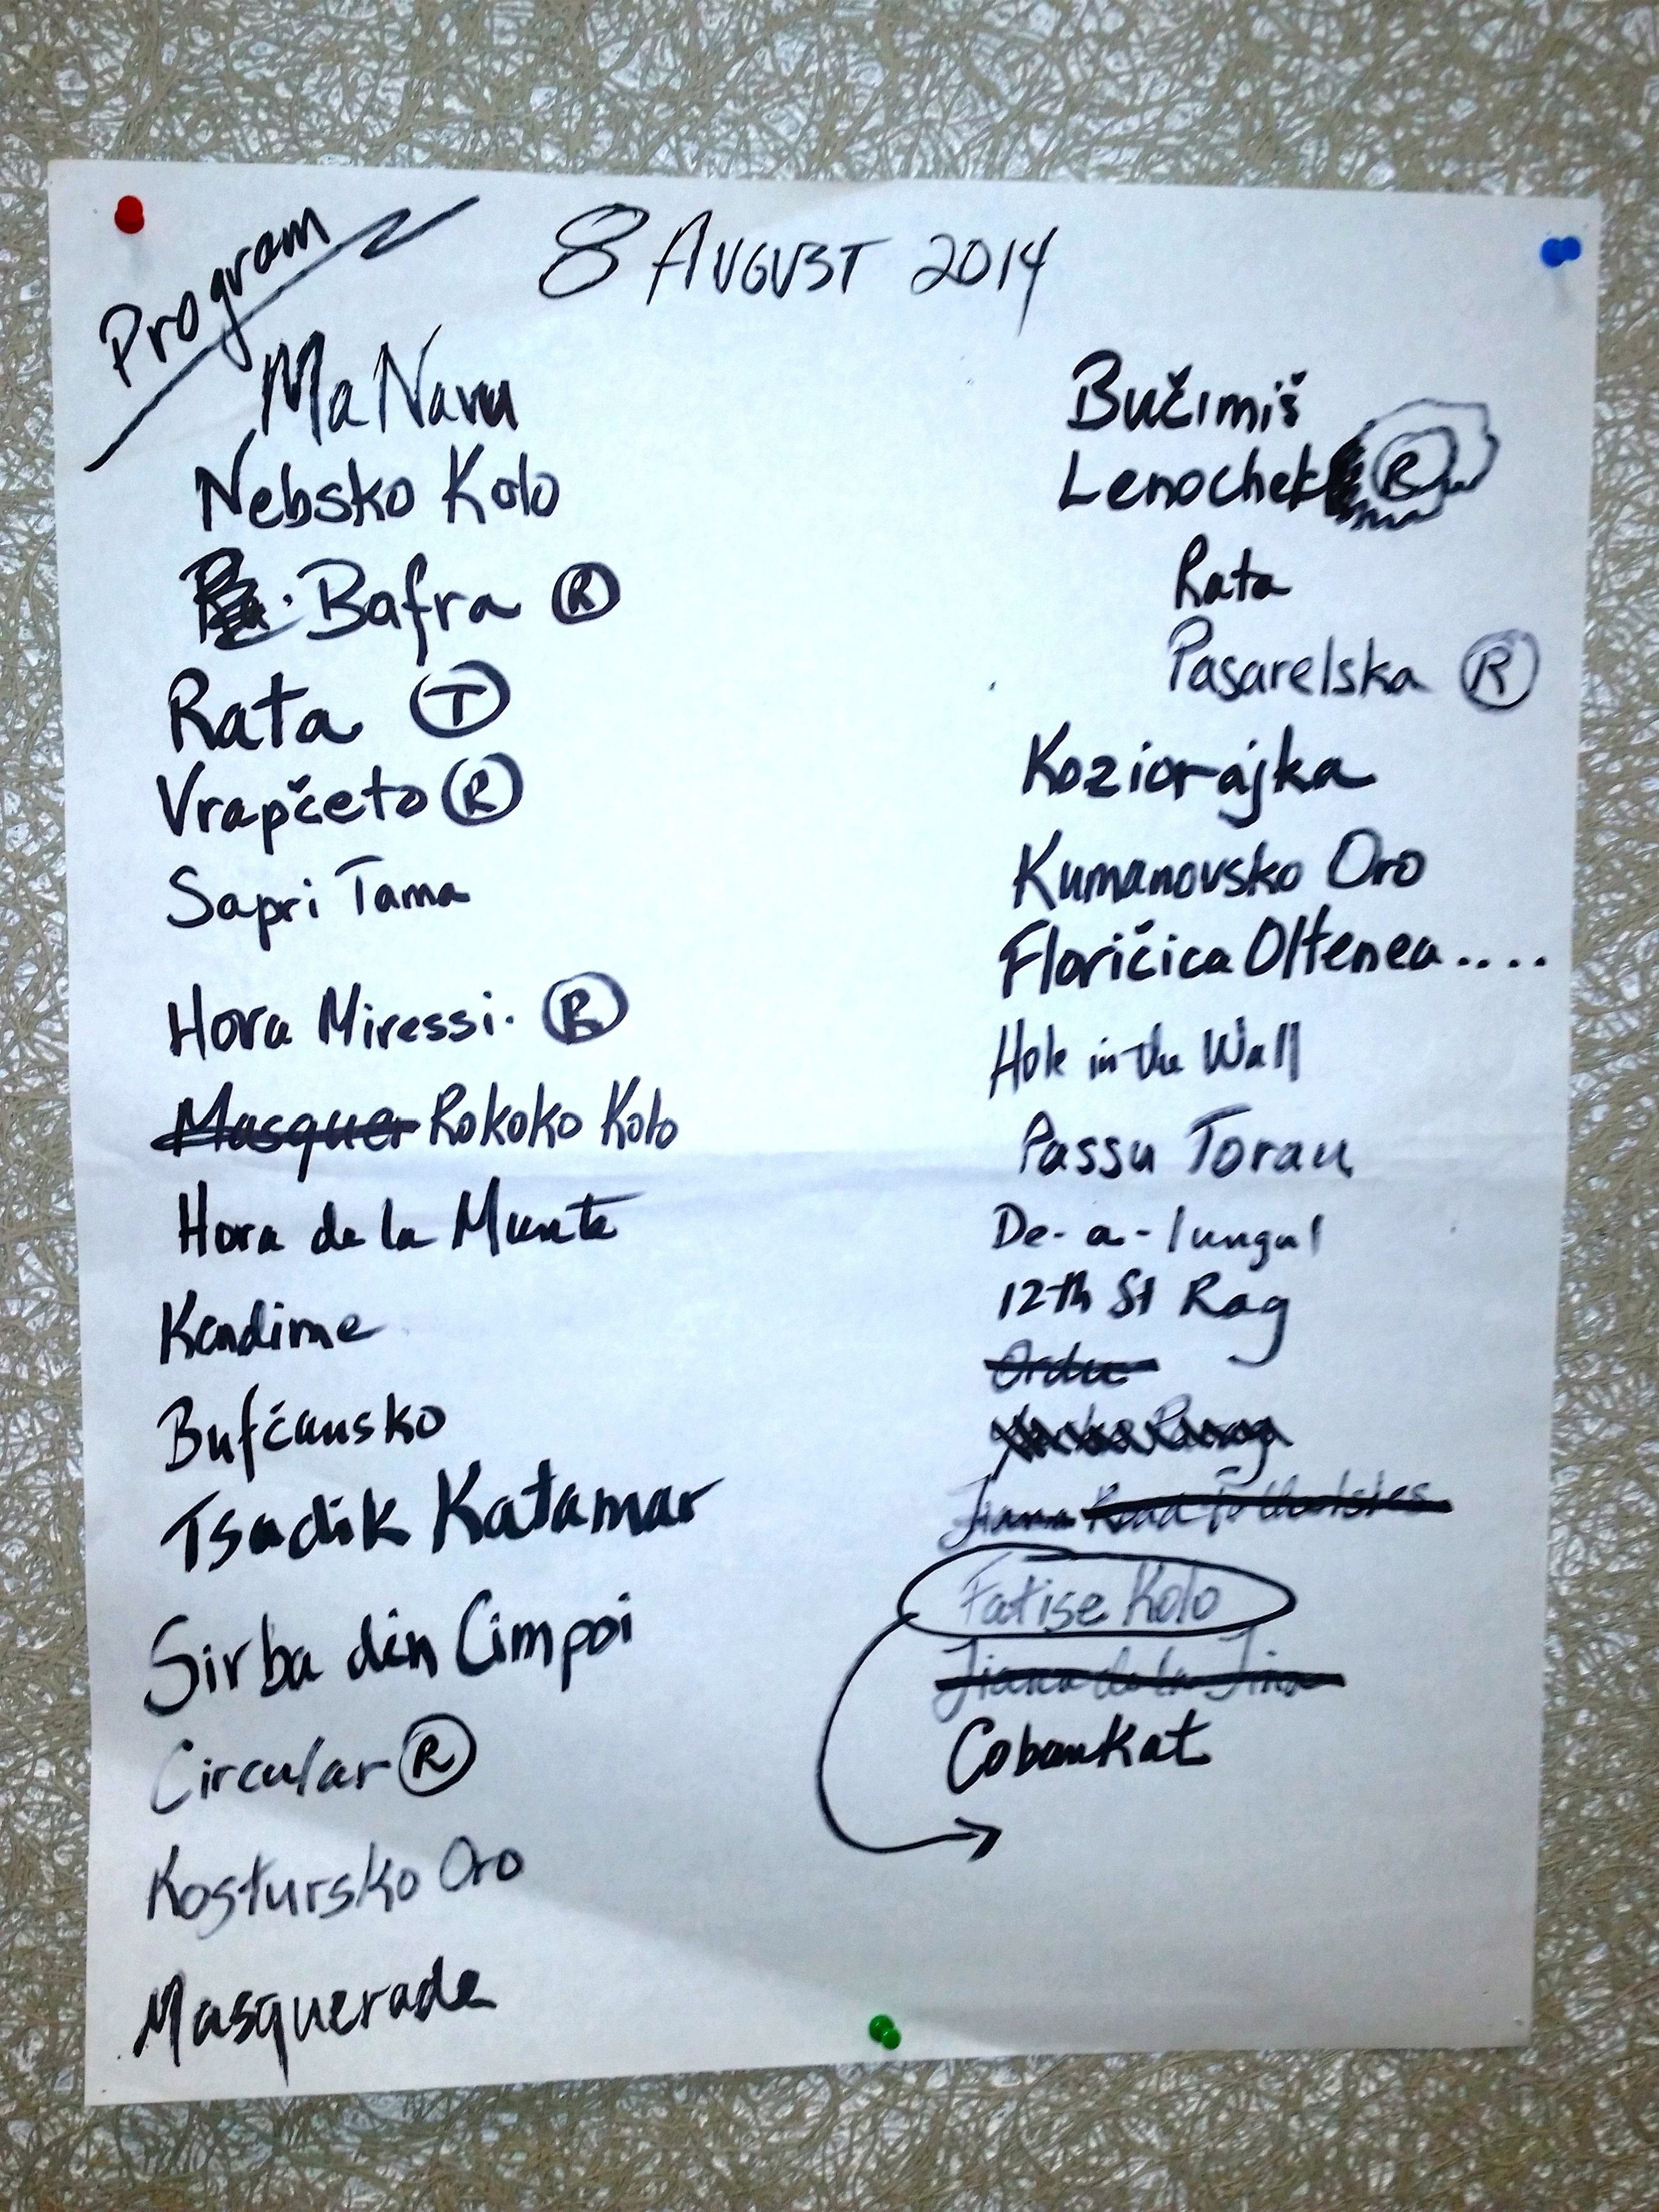 Program
8 AUGUST 2014
Ma Navu
Nebsko Kolo
Bafra Ⓡ
Rata Ⓣ
Vrapčeto Ⓡ
Sapri Tama
Hora Miressi. Ⓡ
Masquer Rokoko Kolo
Hora de la Munte
Kendime
Bufčansko
Tsadik Katamar
Sirba din Cimpoi
Circular Ⓡ
Kostursko Oro
Masquerade
Bučimiš
Lenochek Ⓡ
Rata
Pasarelska Ⓡ
Koziorajka
Kumanovsko Oro
Floričica Oltenea....
Hole in the Wall
Passu Torau
De-a-lungul
12th St Rag
Ordu
Jiana
Fatise Kolo
Jiana de la Jina
Cobankat